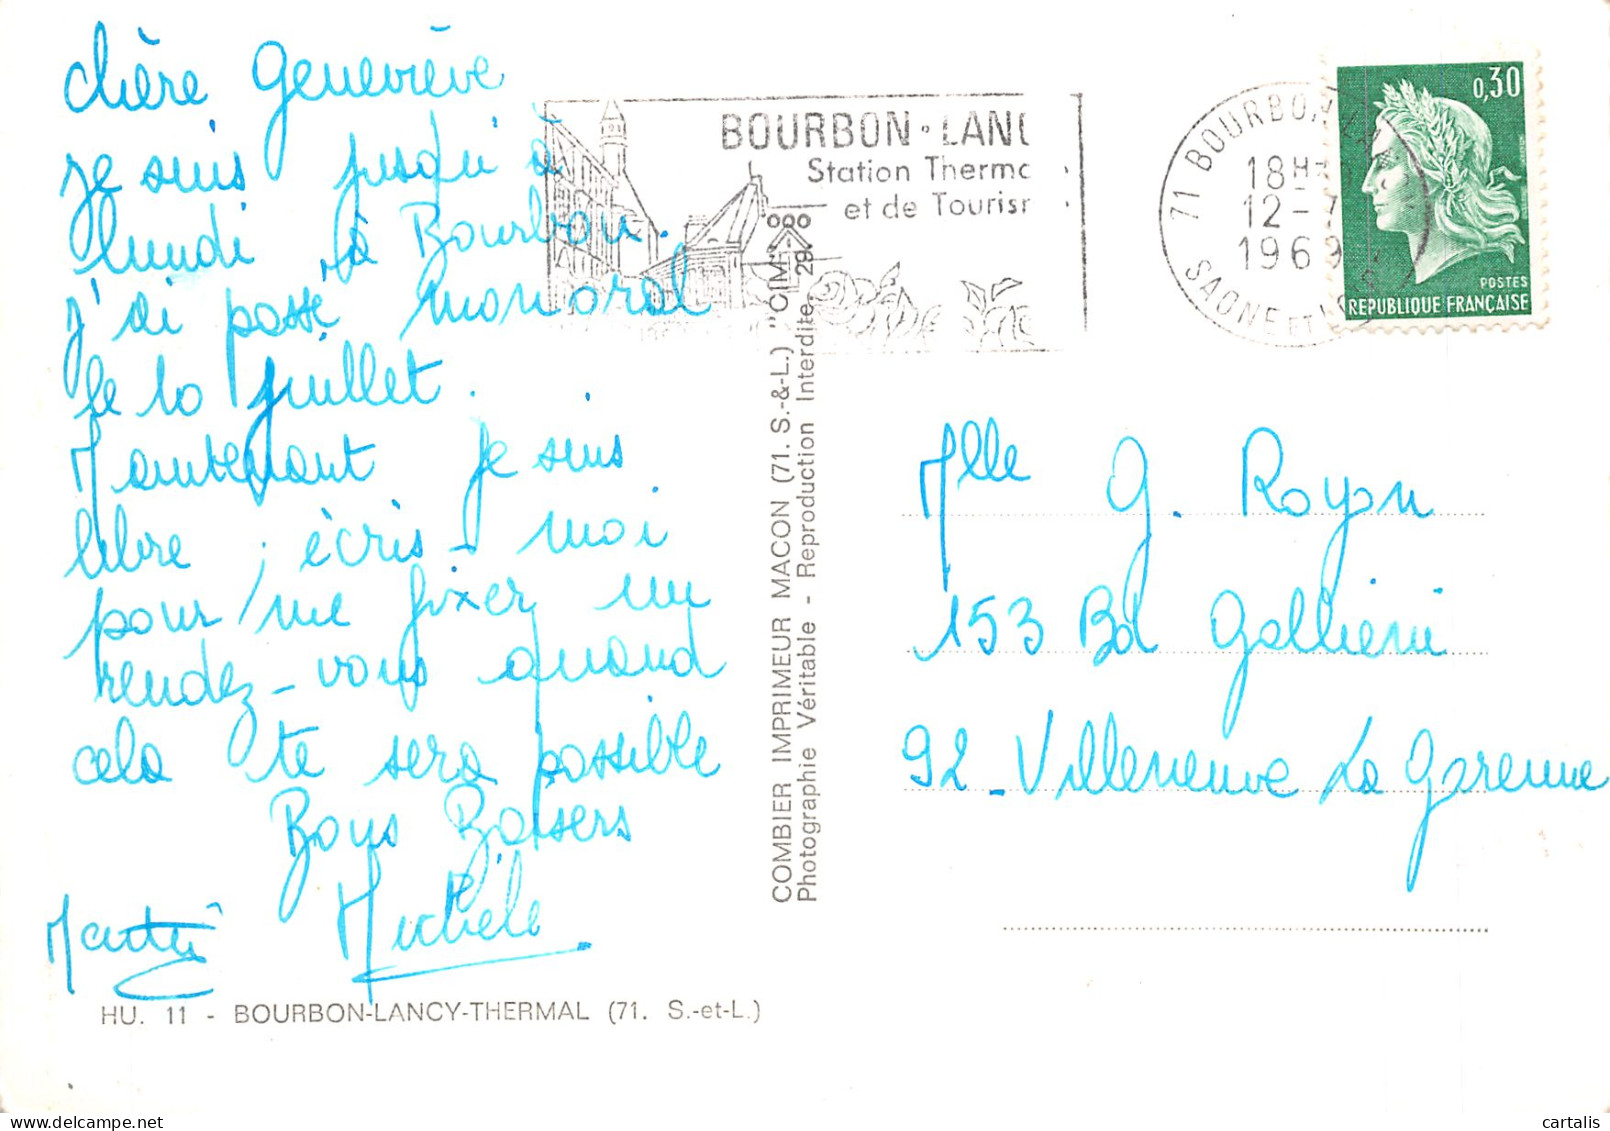 chère Geneviève
je suis jusqu'à
lundi à Bourbon.
j'ai passé mon oral
le 10 juillet.
Maintenant je suis
libre, écris-moi
pour me fixer un
rendez-vous quand
cela te sera possible
Bons Baisers
Michèle
HU. 11 - BOURBON-LANCY-THERMAL (71. S.-et-L.)
COMBIER IMPRIMEUR MACON (71. S.-&-L.) "CIM"
Photographie Véritable - Reproduction Interdite
BOURBON-LANC
Station Therma
et de Tourism
71 BOURBON-LANCY
18H
12-7
1969
SAONE ET LOIRE
0,30
POSTES
REPUBLIQUE FRANÇAISE
Mlle G. Royon
153 Bd Gallieni
92-Villeneuve La Garenne
cartalis